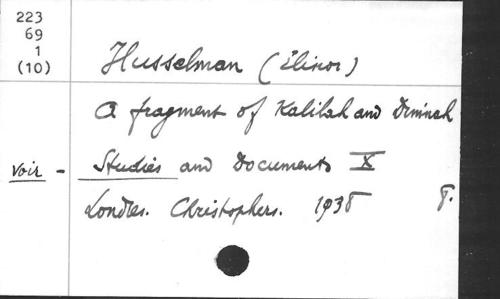 223
69
1
(10)
Husselman (Elinor)
A fragment of Kalilah and Diminah
voir - Studies and Documents X
Londres. Christophers. 1938 8.